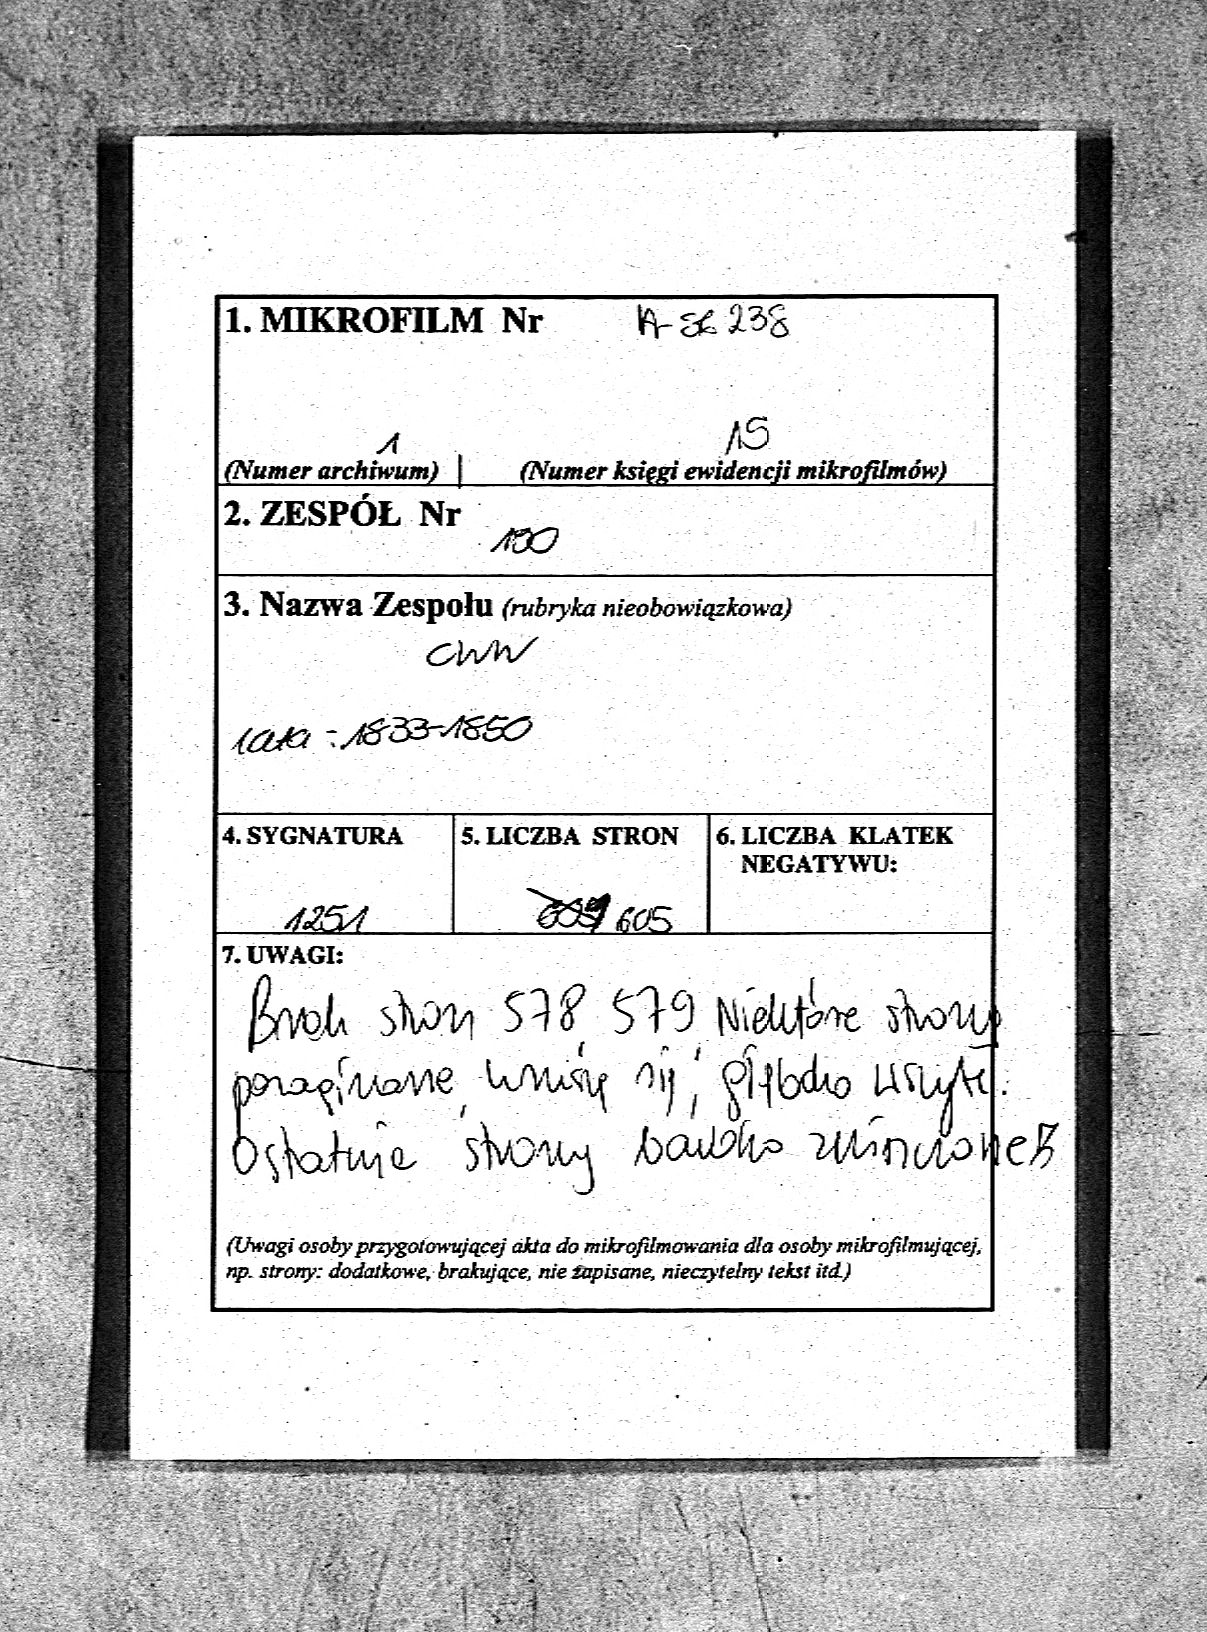 1. MIKROFILM Nr A-56 238
1 15
(Numer archiwum) | (Numer księgi ewidencji mikrofilmów)
2. ZESPÓŁ Nr
190
3. Nazwa Zespołu (rubryka nieobowiązkowa)
CWW
lata - 1833-1850
4. SYGNATURA 5. LICZBA STRON 6. LICZBA KLATEK
NEGATYWU:
1251 609 605
7. UWAGI:
Brak stron 578, 579 Niektóre strony
pozaginane, się, głęboko wszyte.
Ostatnie strony bardzo zniszczone
(Uwagi osoby przygotowującej akta do mikrofilmowania dla osoby mikrofilmującej,
np. strony: dodatkowe, brakujące, nie zapisane, nieczytelny tekst itd.)